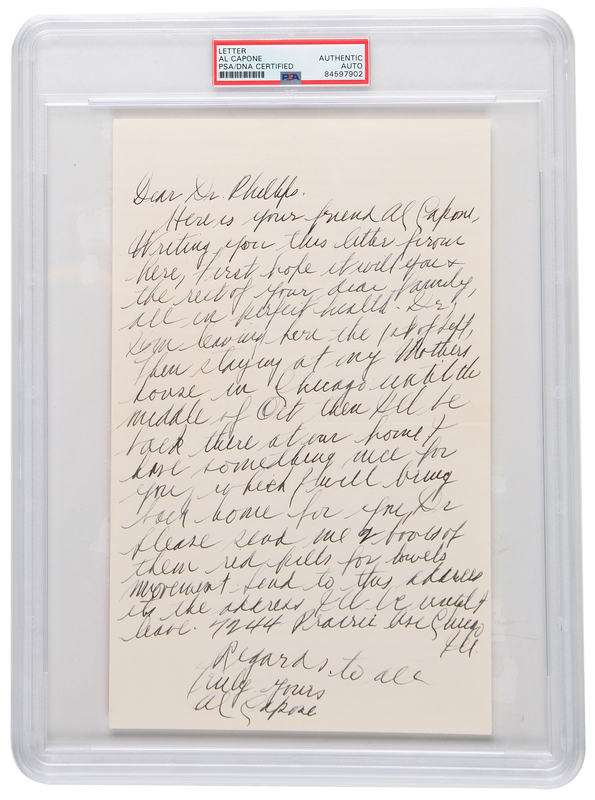 LETTER
AL CAPONE
PSA/DNA CERTIFIED
AUTHENTIC
AUTO
84597902
PSA
Dear Dr Phillips.
Here is your friend Al Capone,
Writing you this letter from
here, first hope it will you &
the rest of your dear family,
all in perfect health. Dr,
Iam leaving here the 1st of Sept,
then staying at my Mothers
house in Chicago until the
middle of Oct then Ill be
back there at our home &
have something nice for
you which I will bring
back home for you, Dr
please send me 2 boxes of
them red pills for bowels
movement send to this address
its the address Ill be until I
leave. 7244 Prairie Ave Chicago
Ill.
Regards to all
Truly Yours
Al Capone